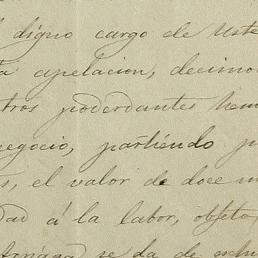 digno cargo de Uste
apelacion, decimo
tros poderdantes hem
negocio, partiendo p
s, el valor de doce m
dad á la labor, objeto
se da de